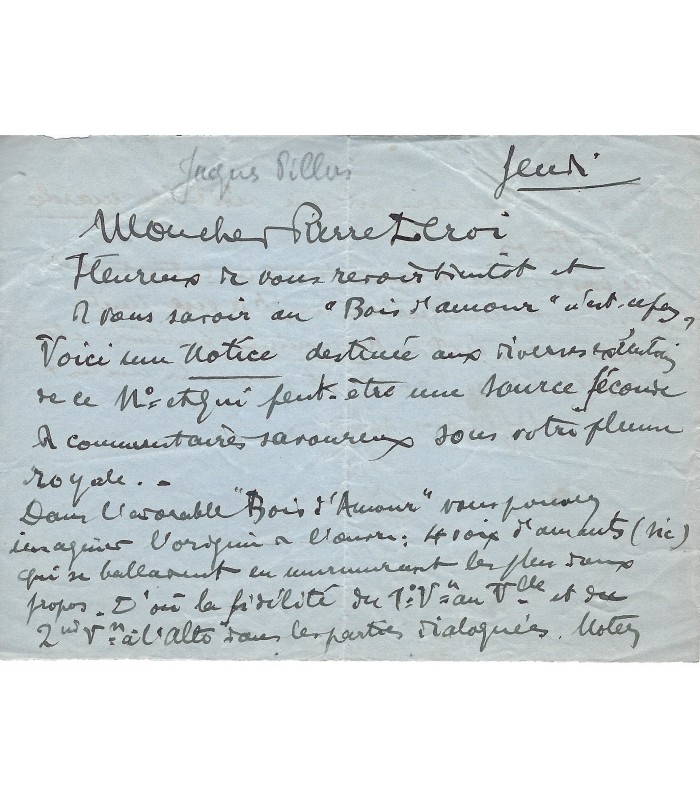 Jaques Pillois
Jeudi
Mon cher Pierre Leroi
Heureux de vous revoir bientôt et
de vous savoir au "Bois d'amour" n'est-ce pas,
Voici une Notice destinée aux diverses exécutions
de ce No= et qui peut-être une source féconde
de commentaires savoureux sous votre plume
royale. -
Dans l'adorable "Bois d'Amour" vous pouvez
imaginer l'origine de l'œuvre: 4 voix d'amants (sic)
qui se balladent en murmurant les plus doux
propos. D'où la fidélité du 1o Von au Vlle et du
2nd Von à l'Alto dans les parties dialoguées. Notez